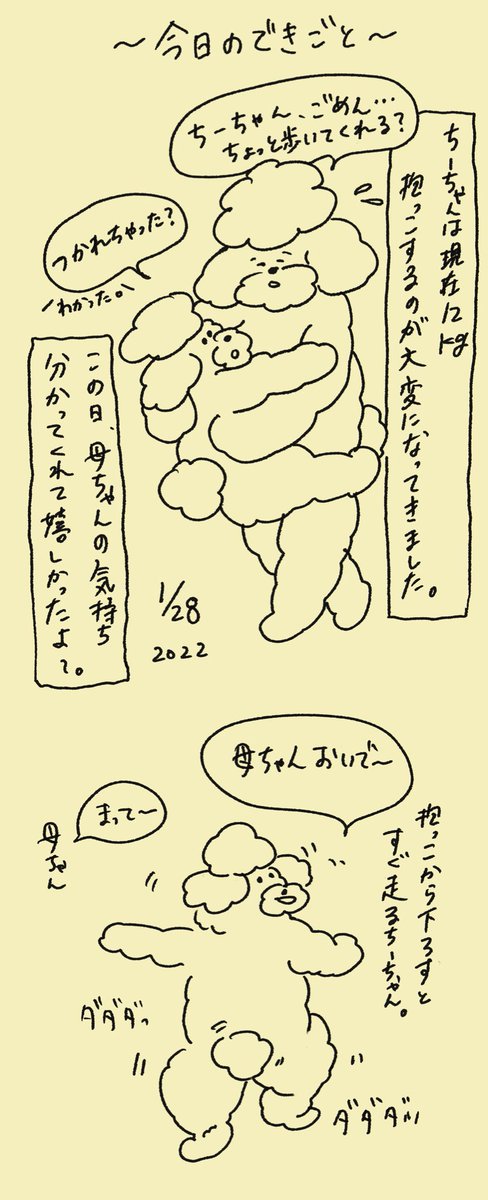 〜今日のできごと〜
ちーちゃんは現在12kg
抱っこするのが大変になってきました。
ちーちゃん、ごめん…
ちょっと歩いてくれる？
つかれちゃった？
わかった。
この日、母ちゃんの気持ち
分かってくれて嬉しかったよ〜。
1/28
2022
母ちゃんおいで〜
まって〜
母ちゃん
抱っこから下ろすと
すぐ走るちーちゃん。
ダダダッ
ダダダッ